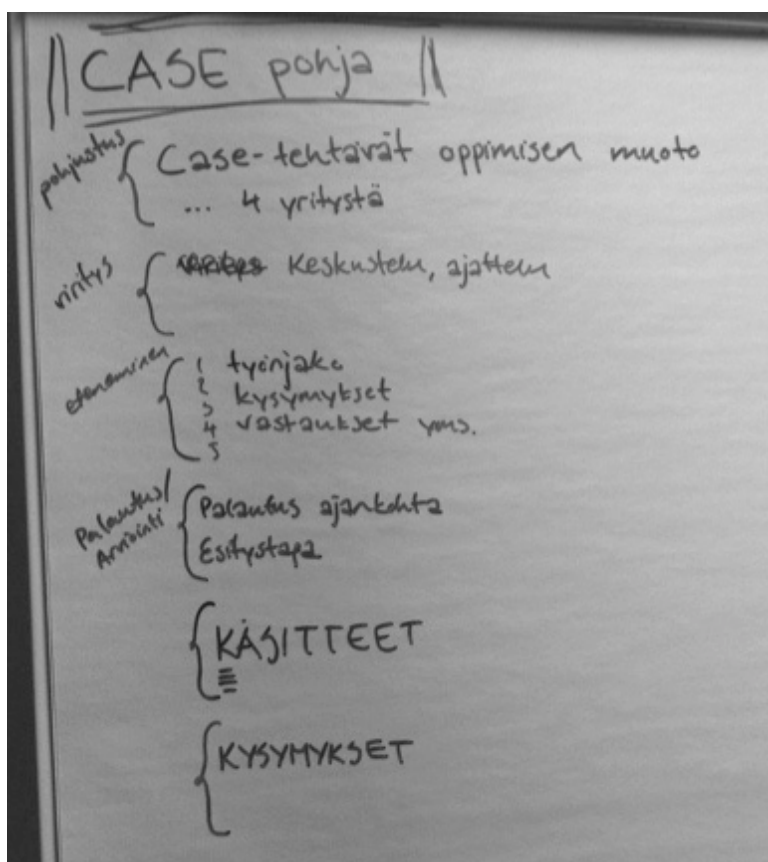 CASE pohja
pohjustus
Case-tehtävät oppimisen muoto
... 4 yritystä
viritys
Keskustelu, ajattelu
eteneminen
1 työnjako
2 kysymykset
3 vastaukset yms.
4
5
Palautus/
Arviointi
Palautus ajankohta
Esitystapa
KÄSITTEET
KYSYMYKSET